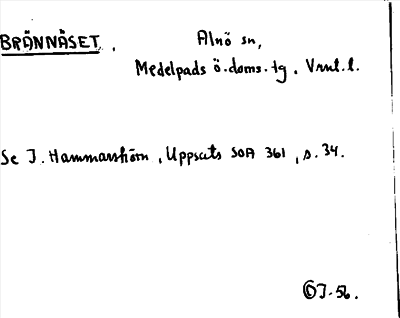 BRÄNNÄSET. Alnö sn,
Medelpads ö. doms. tg. Vrnl. l.
Se I. Hammarström, Uppsats SOA 361, s. 34.
OJ-56.